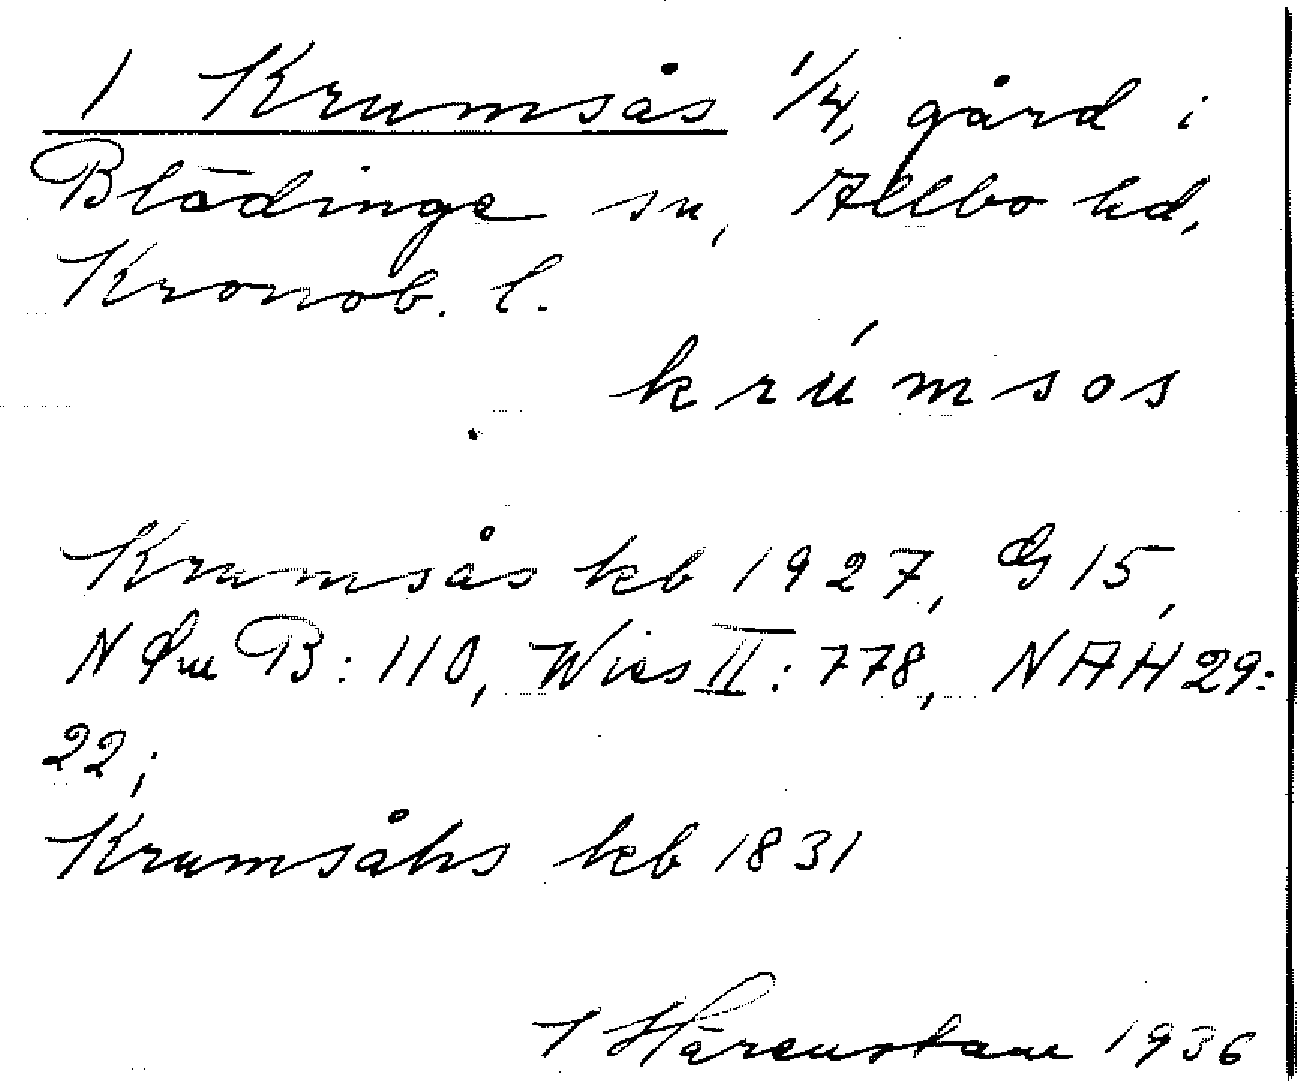 1 Krumsås 1/4, gård i
Blädinge sn, Allbo hd,
Kronob. l.
krúmsos
Krumsås kb 1927, G 15,
N B: 110, Wies II: 778, NAH 29:
22;
Krumsåhs kb 1831
1936